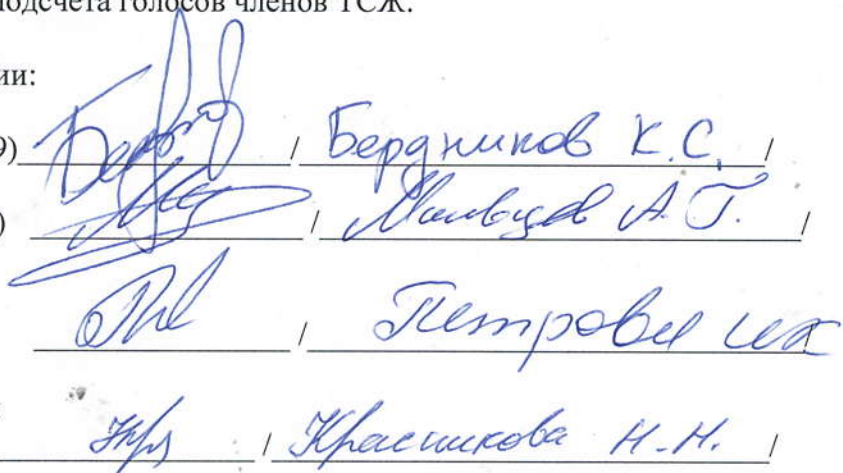 подсчета голосов членов ТСЖ.
ии:
9) / Бердников К.С. /
) / Мальцев А.Г. /
/ Петрович /
/ Красникова Н.Н. /